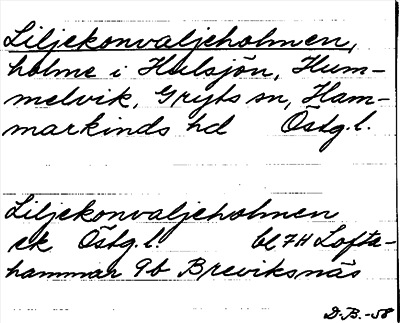 Liljekonvaljeholmen,
holme i Hulsjön, Hum-
melvik, Gryts sn, Ham-
markinds hd Östg.l.
Liljekonvaljeholmen
ek Östg.l. bl 7H Lofta-
hammar 9b Breviksnäs
D.B.-58